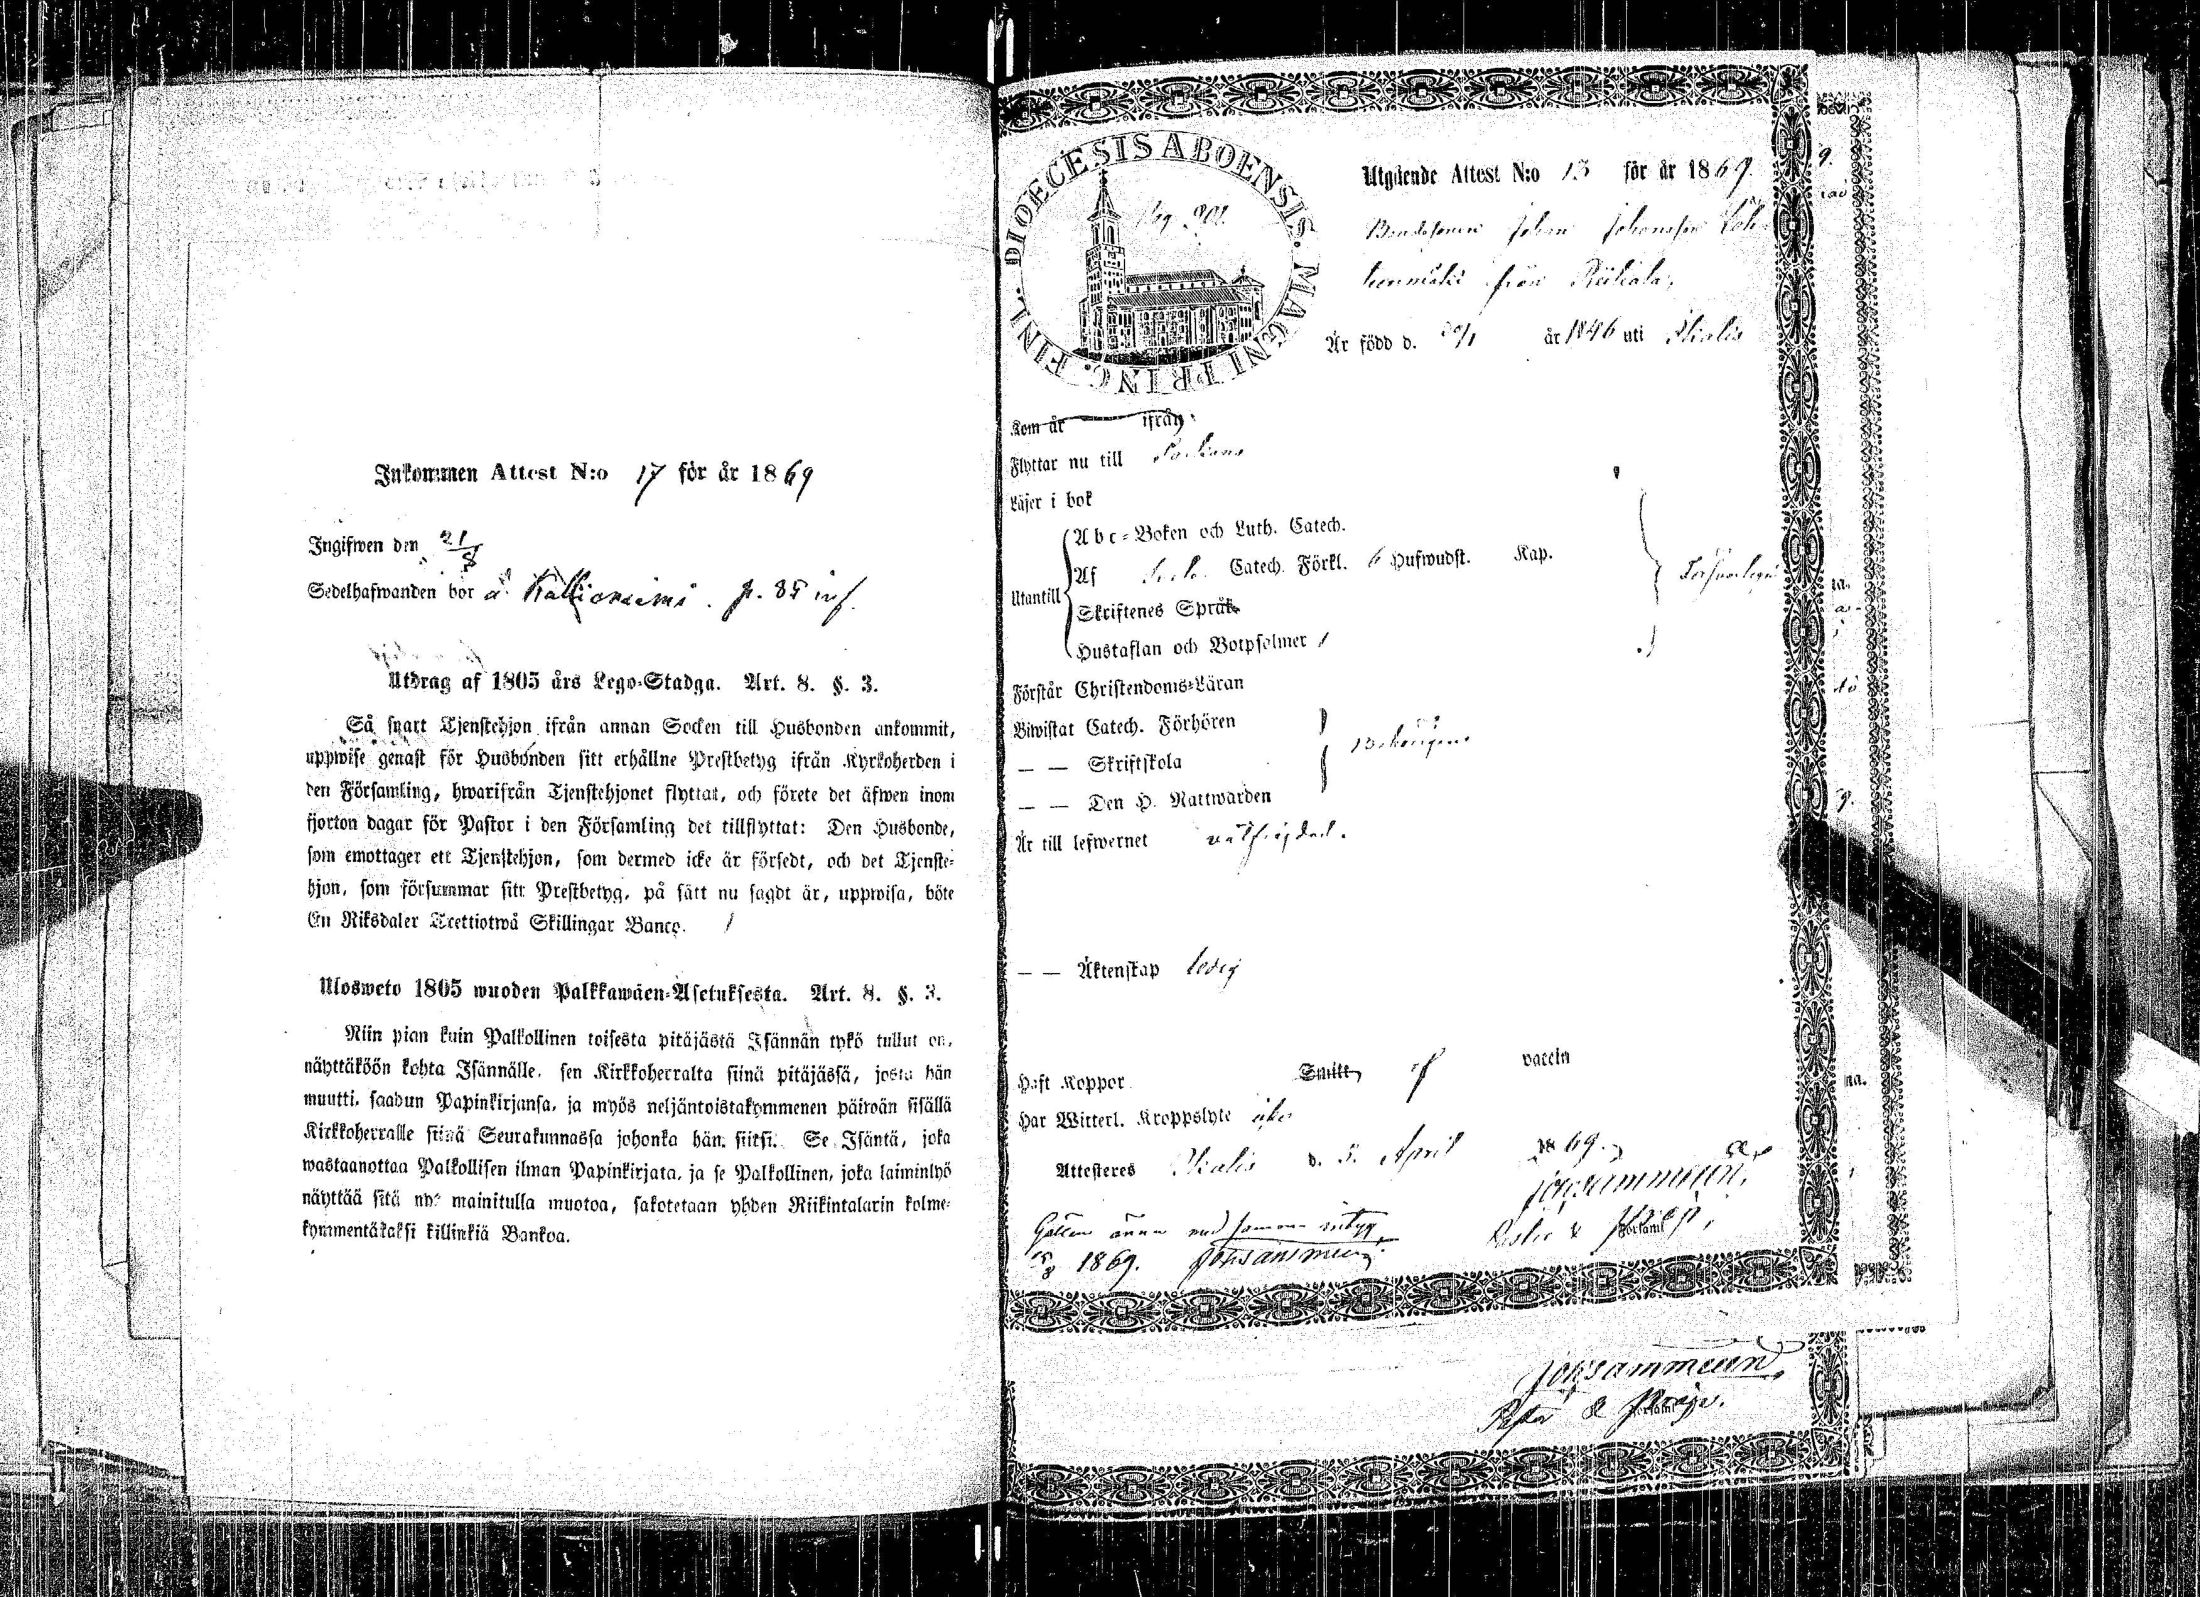 Inkommen Attest N:o 17 för år 1869
Ingifwen den 21/8
Sedelhafwanden bor å Kallioniemi. p. 85 inf.
Utdrag af 1805 års Lego-Stadga. Art. 8. §. 3.
Så snart Tjenstehjon ifrån annan Socken till Husbonden ankommit,
uppwise genast för Husbonden sitt erhållne Prestbetyg ifrån Kyrkoherden i
den Församling, hwarifrån Tjenstehjonet flyttat, och förete det äfwen inom
fjorton dagar för Pastor i den Församling det tillflyttat: Den Husbonde,
som emottager ett Tjenstehjon, som dermed icke är försedt, och det Tjenste-
hjon, som försummar sitt Prestbetyg, på sätt nu sagdt är, uppwisa, böte
En Riksdaler Trettiotwå Skillingar Banco.
Ulosweto 1805 wuoden Palkkawäen-Asetuksesta. Art. 8. §. 3.
Niin pian kuin Palkollinen toisesta pitäjästä Isännän tykö tullut on,
näyttäköön kohta Isännälle, sen Kirkkoherralta siinä pitäjässä, josta hän
muutti, saadun Papinkirjansa, ja myös neljäntoistakymmenen päiwän sisällä
Kirkkoherralle siinä Seurakunnassa johonka hän siitsi. Se Isäntä, joka
wastaanottaa Palkollisen ilman Papinkirjata, ja se Palkollinen, joka laiminlyö
näyttää sitä nyt mainitulla muotoa, sakotetaan yhden Riikintalarin kolme-
kymmentäkaksi killinkiä Bankoa.
DIOECESIS ABOENSIS. MAGNI PRINC. FINL.
Utgående Attest N:o 13 för år 1869.
Bondesonen Johan Johansson
från
Är född d. år 1846 uti Ikalis
Kom år ifrån
Flyttar nu till
Läser i bok
Utantill
Abc-Boken och Luth. Catech.
Af Catech. Förkl. 6 Hufwudst. Kap.
Försvarligen
Skriftenes Språk
Hustaflan och Botpsalmer
Förstår Christendoms-Läran
Biwistat Catech. Förhören
— — Skriftskola
Behörigen
— — Den H. Nattwarden
Är till lefwernet välfrejdad.
— — Äktenskap ledig
Haft Koppor Smitt af vaccin
Har Witterl. Kroppslyte icke
Attesteras Ikalis d. 5. April 1869.
Joh. Sanmmeun,
Församl.
Gäller ännu med samma intyg,
15/8 1869.
Församl.